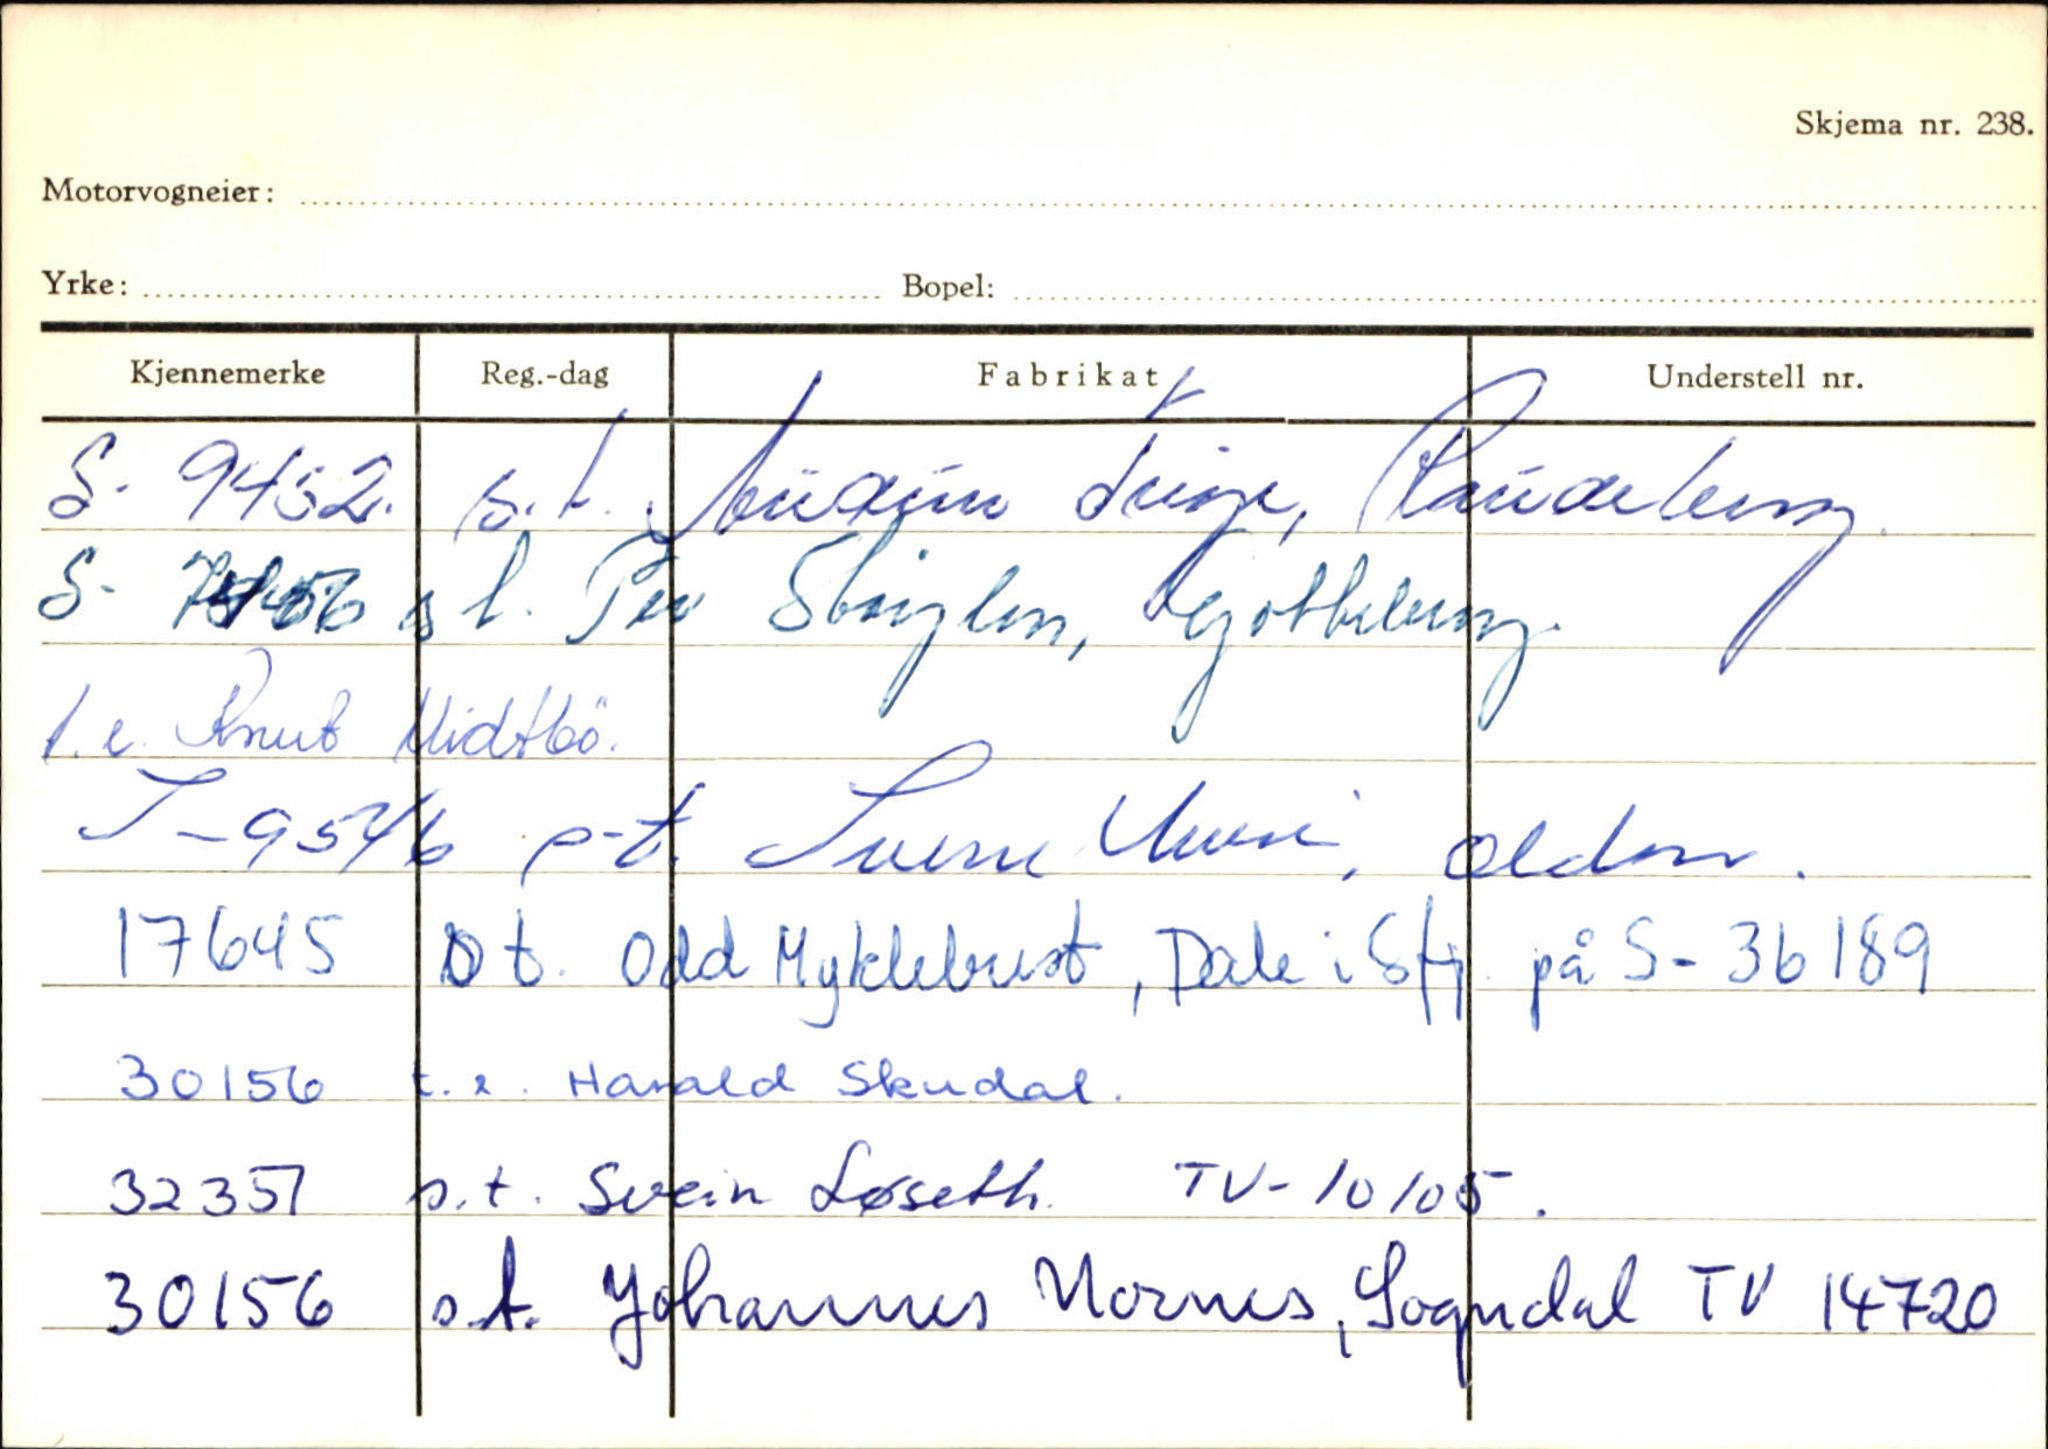 Skjema nr. 238.
Motorvogneier:
Yrke: Bopel:
Kjennemerke Reg.-dag Fabrikat Understell nr.
S. 9452. s.t. Raudeberg.
S- s t. Per
t.e. Knut Midtbö.
S-9546 s-t. Sverre Muri, Olden.
17645 s t. Odd Myklebust, Dale i Sfj. på S-36189
30156 t.e. Harald Skudal.
32351 s.t. Svein Løseth. TV-10105.
30156 s.t. Johannes Nornes, Sogndal TV 14720